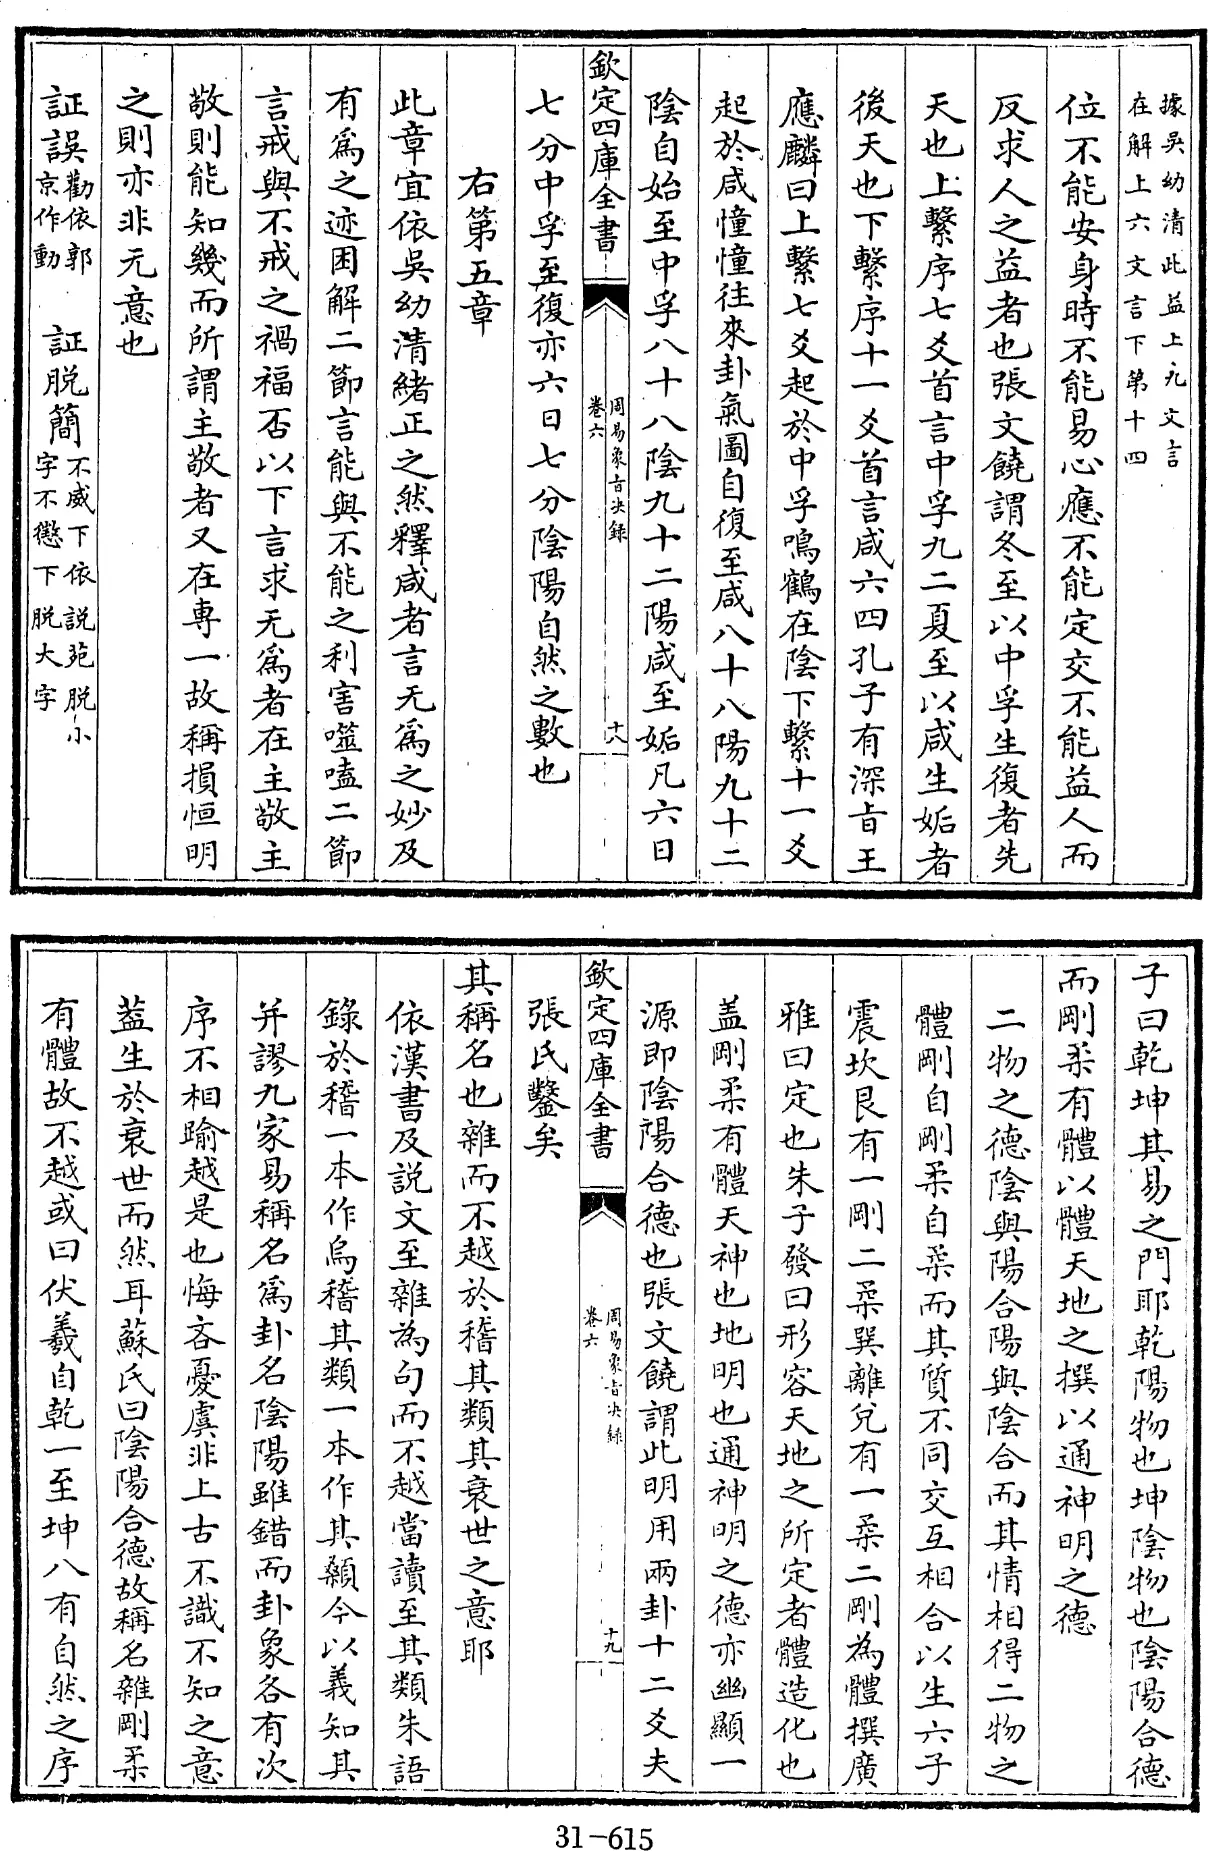 據吳幼清此益上九文言
在解上六文言下第十四
位不能安身時不能易心應不能定交不能益人而
反求人之益者也張文饒謂冬至以中孚生復者先
天也上繫序七爻首言中孚九二夏至以咸生姤者
後天也下繫序十一爻首言咸六四孔子有深旨王
應麟曰上繫七爻起於中孚鳴鶴在陰下繫十一爻
起於咸憧憧往來卦氣圖自復至咸八十八陽九十二
陰自始至中孚八十八陰九十二陽咸至姤凡六日
七分中孚至復亦六日七分陰陽自然之數也
欽定四庫全書
周易象旨決錄
卷六
十八
右第五章
此章宜依吳幼清緒正之然釋咸者言无為之妙及
有為之迹困解二節言能與不能之利害噬嗑二節
言戒與不戒之禍福否以下言求无為者在主敬主
敬則能知幾而所謂主敬者又在專一故稱損恒明
之則亦非元意也
証誤勸依郭京作動 証脱簡不威下依説苑脱小字不懲下脱大字
子曰乾坤其易之門耶乾陽物也坤陰物也陰陽合德
而剛柔有體以體天地之撰以通神明之德
二物之德陰與陽合陽與陰合而其情相得二物之
體剛自剛柔自柔而其質不同交互相合以生六子
震坎艮有一剛二柔巽離兌有一柔二剛為體撰廣
雅曰定也朱子發曰形容天地之所定者體造化也
蓋剛柔有體天神也地明也通神明之德亦幽顯一
源即陰陽合德也張文饒謂此明用兩卦十二爻夫
欽定四庫全書
周易象旨決錄
卷六
十九
張氏鑿矣
其稱名也雜而不越於稽其類其衰世之意耶
依漢書及説文至雜為句而不越當讀至其類朱語
錄於稽一本作烏稽其類一本作其顙今以義知其
并謬九家易稱名為卦名陰陽雖錯而卦象各有次
序不相踰越是也悔吝憂虞非上古不識不知之意
葢生於衰世而然耳蘇氏曰陰陽合德故稱名雜剛柔
有體故不越或曰伏羲自乾一至坤八有自然之序
31-615